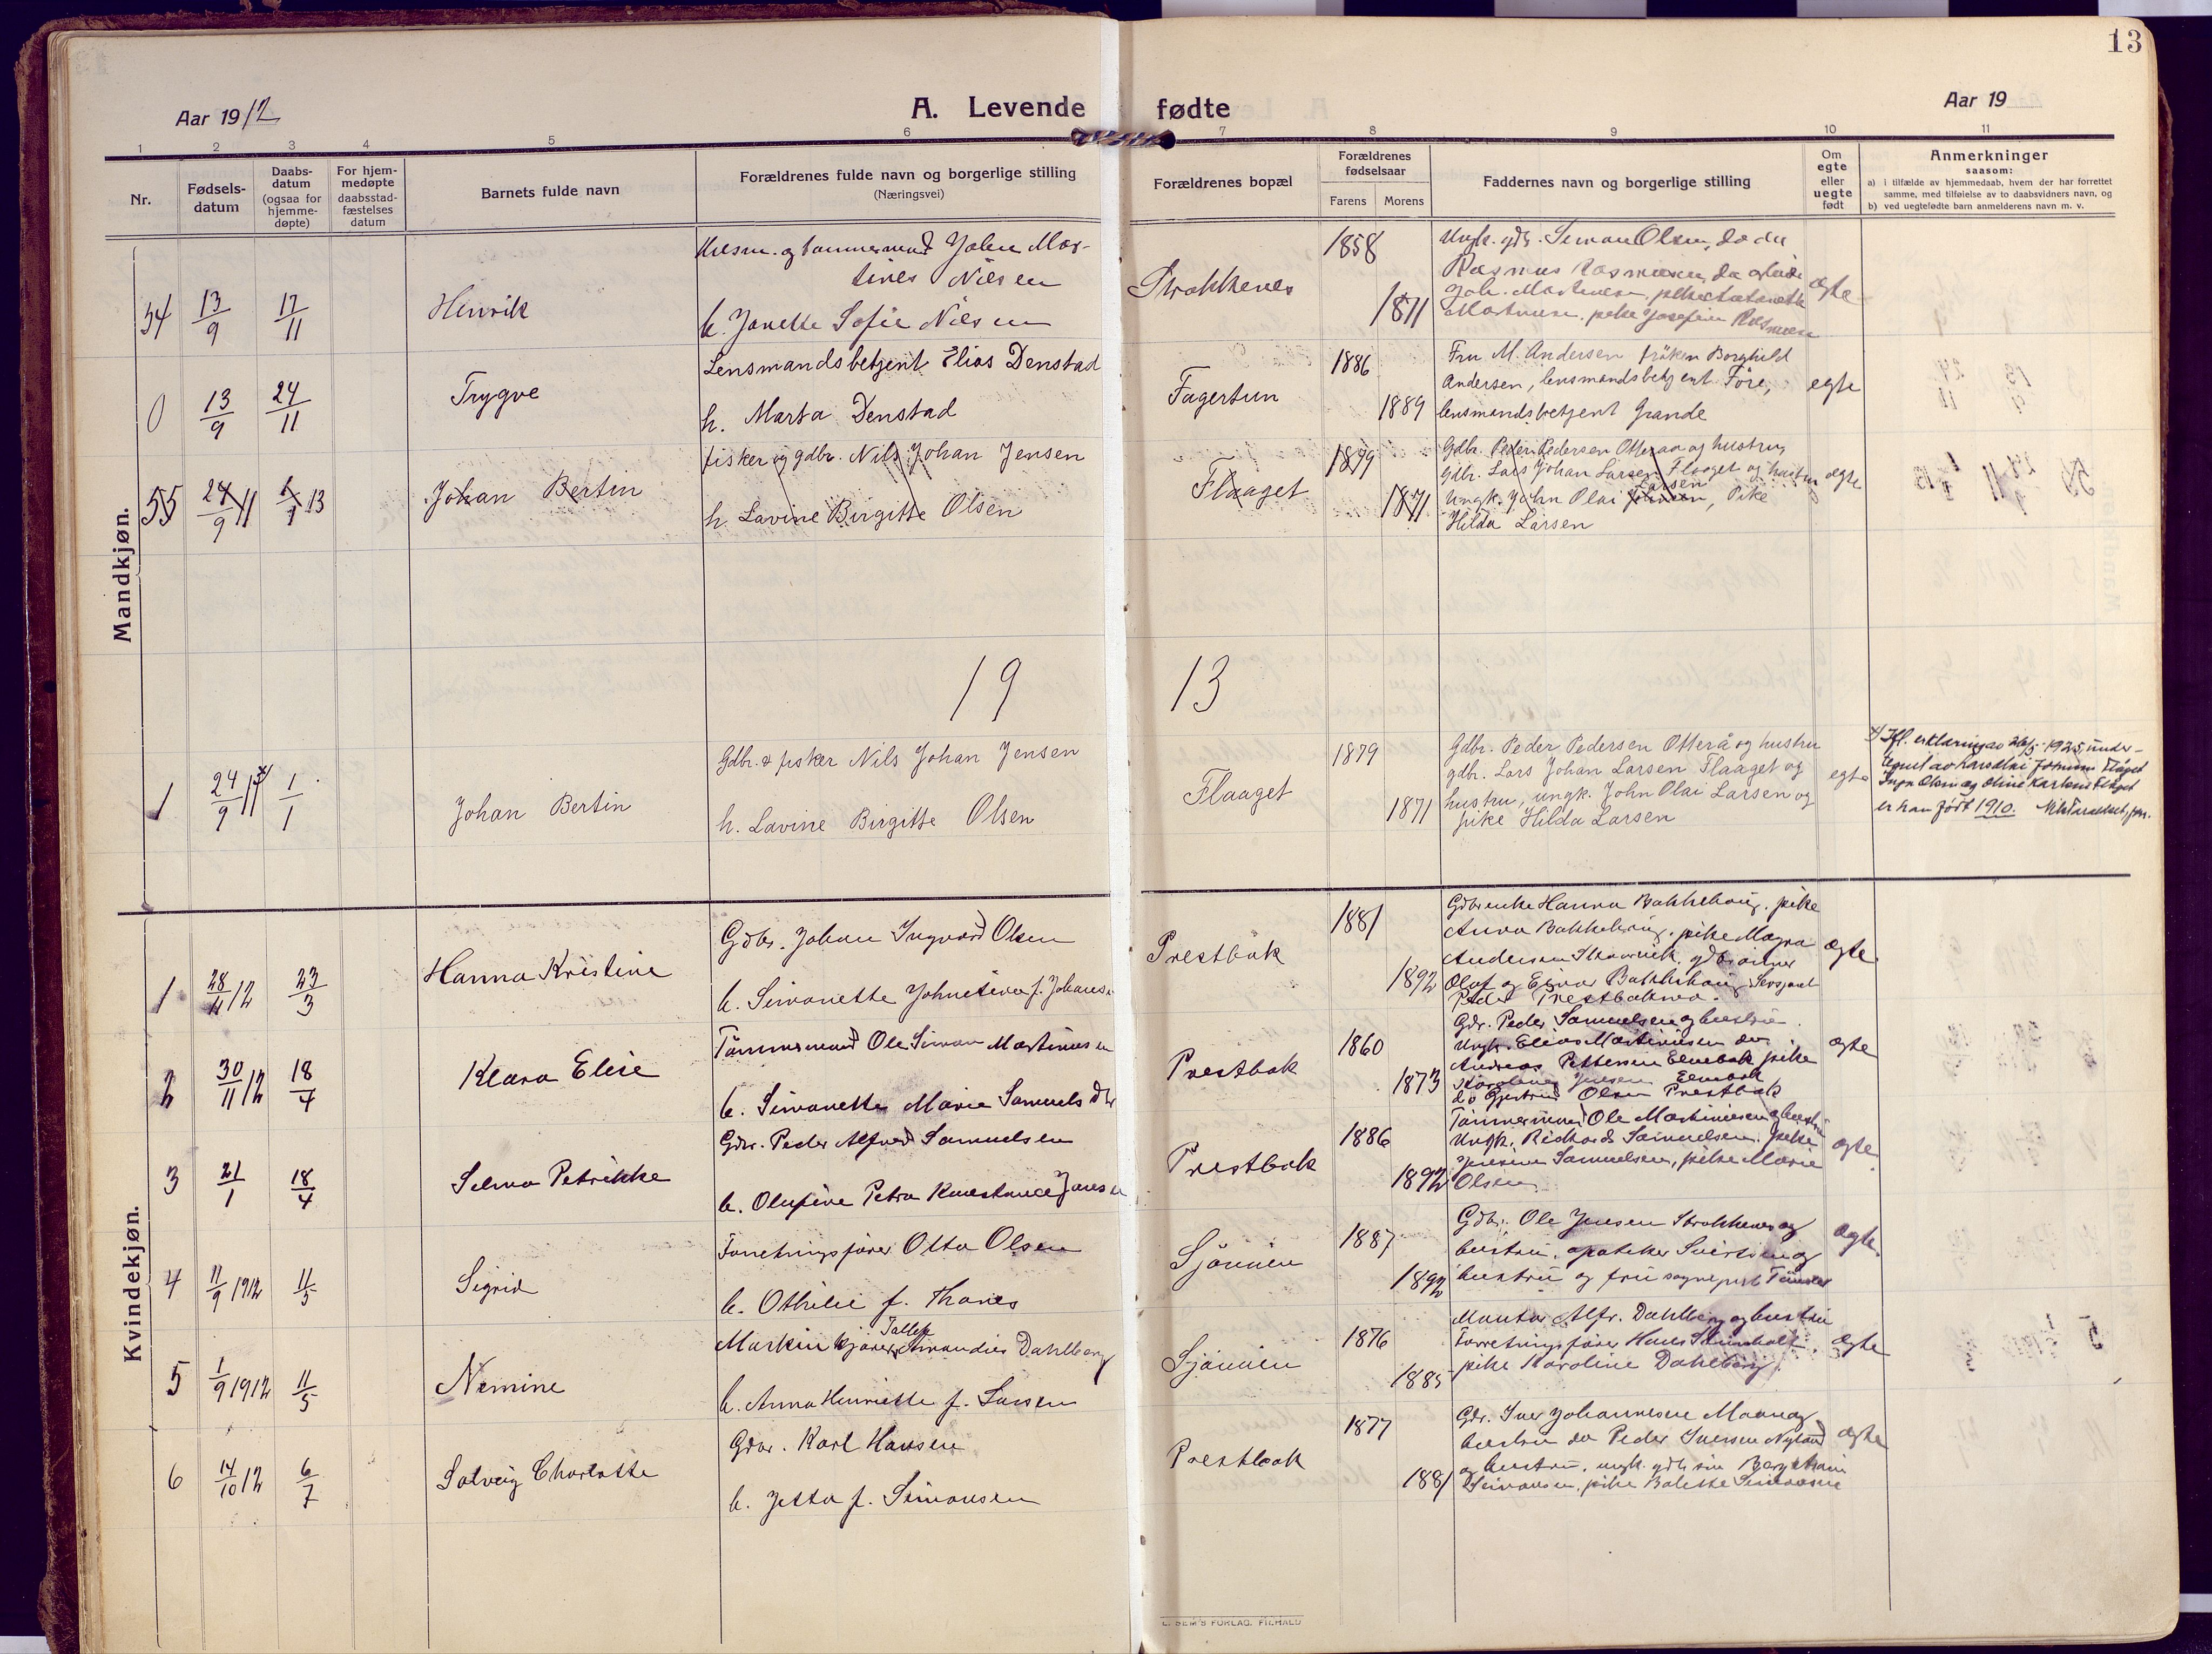 13
Aar 1912
A. Levende fødte
Aar 19
1 2 3 4 5 6 7 8 9 10 11
Nr.
Fødsels-
datum
Daabs-
datum
(ogsaa for
hjemme-
døpte)
For hjem-
medøpte
daabsstad-
fæstelses
datum
Barnets fulde navn
Forældrenes fulde navn og borgerlige stilling
(Næringsvei)
Forældrenes bopæl
Forældrenes
fødselsaar
Farens Morens
Faddernes navn og borgerlige stilling
Om
egte
eller
uegte
født
Anmerkninger
saasom:
a) i tilfælde av hjemmedaab, hvem der har forrettet
samme, med tilføielse av to daabsvidners navn, og
b) ved uegtefødte barn anmelderens navn m. v.
Mandkjøn.
54 13/9 17/11
Henrik
Johan Mar-
tines Nilsen
h. Janette Sofie Nilsen
Strokkenes
1858
1871
Ungk. gdb. Simon Olsen,
Rasmus Rasmussen
egte
0 13/9 24/11
Trygve
Lensmandsbetjent Elias Denstad
h. Marta Denstad
Fagertun
1886
1889
Fru M. Andersen frøken Borghild
Andersen, lensmandsbetjent Føre,
lensmandsbetjent Grande
egte
55 24/9 11 1/1 13
Johan Bertin
fisker og gdbr. Nils Johan Jensen
h. Lavine Birgitte Olsen
Flaaget
1879
1871
Gdbr. Peder Pedersen Otteraa og hustru,
Gdbr. Lars Johan Larsen Flaaget og hustru
Larsen
Ungk. John Olai Johnsen, Pike
Hilda Larsen
egte
19 13
1 24/9 11 1/1
Johan Bertin
Gdbr. & fisker Nils Johan Jensen
h. Lavine Birgitte Olsen
Flaaget
1879
1871
Gdbr. Peder Pedersen Otterå og hustru
gdbr. Lars Johan Larsen Flaaget og
hustru, ungk. John Olai Larsen og
pike Hilda Larsen
egte
Ifl. erklæring av 26/5 1925, under-
tegnet av
er han født 1910.
Kvindekjøn.
1 28/11 12 23/3
Hanna Kristine
Gdbr. Johan Ingvard Olsen
h. Simonette
Prestbak
1881
1892
Gdbrenke Hanna Bakkehaug, pike
Anna Bakkehaug, pike Magna
Olaf og Einar Bakkehaug
Peder
egte
2 30/11 12 18/4
Klara Elise
Tømmermand Ole Simon Martinusen
h. Simonette Marie Samuelsdtr
Prestbak
1860
1873
Gdr. Peder Samuelsen og hustru
Ungk. Elias Martinusen
Andreas Pettersen Elvebak pike
Jensen Elvebak
do Gjertrud Olsen Prestbak
egte
3 21/1 18/4
Selma Petrikke
Gdr. Peder Alfred Samuelsen
h. Olufine Petra Konstance Jansen
Prestbak
1886
1892
Tømmermand Ole Martinusen og hustru
Ungk. Rickard Samuelsen, pike
Samuelsen, pike Marie
Olsen
egte
4 11/9 1912 11/5
Sigrid
Forretningsfører Otto Olsen
h. Othilie f. Thanes
Sjøveien
1887
1892
Gdbr. Ole Jensen Strokkenes og
hustru, apoteker
hustru og fru sogneprest
egte
5 1/9 1912 11/5
Nemine
Tallef
Amandus Dahlberg
h. Anna Henriette f. Larsen
Sjøveien
1876
1885
Alfr. Dahlberg og hustru
Forretningsfører Hans
pike Karoline Dahlberg
egte
6 14/10 12 6/7
Solveig Charlotte
Gdbr. Karl Hansen
h. Jetta f. Simonsen
Prestbak
1877
1881
Gdr. Iver Johannesen Moan og
hustru do Peder Iversen Nyland
og hustru, ungk.
Simonsen, pike
egte